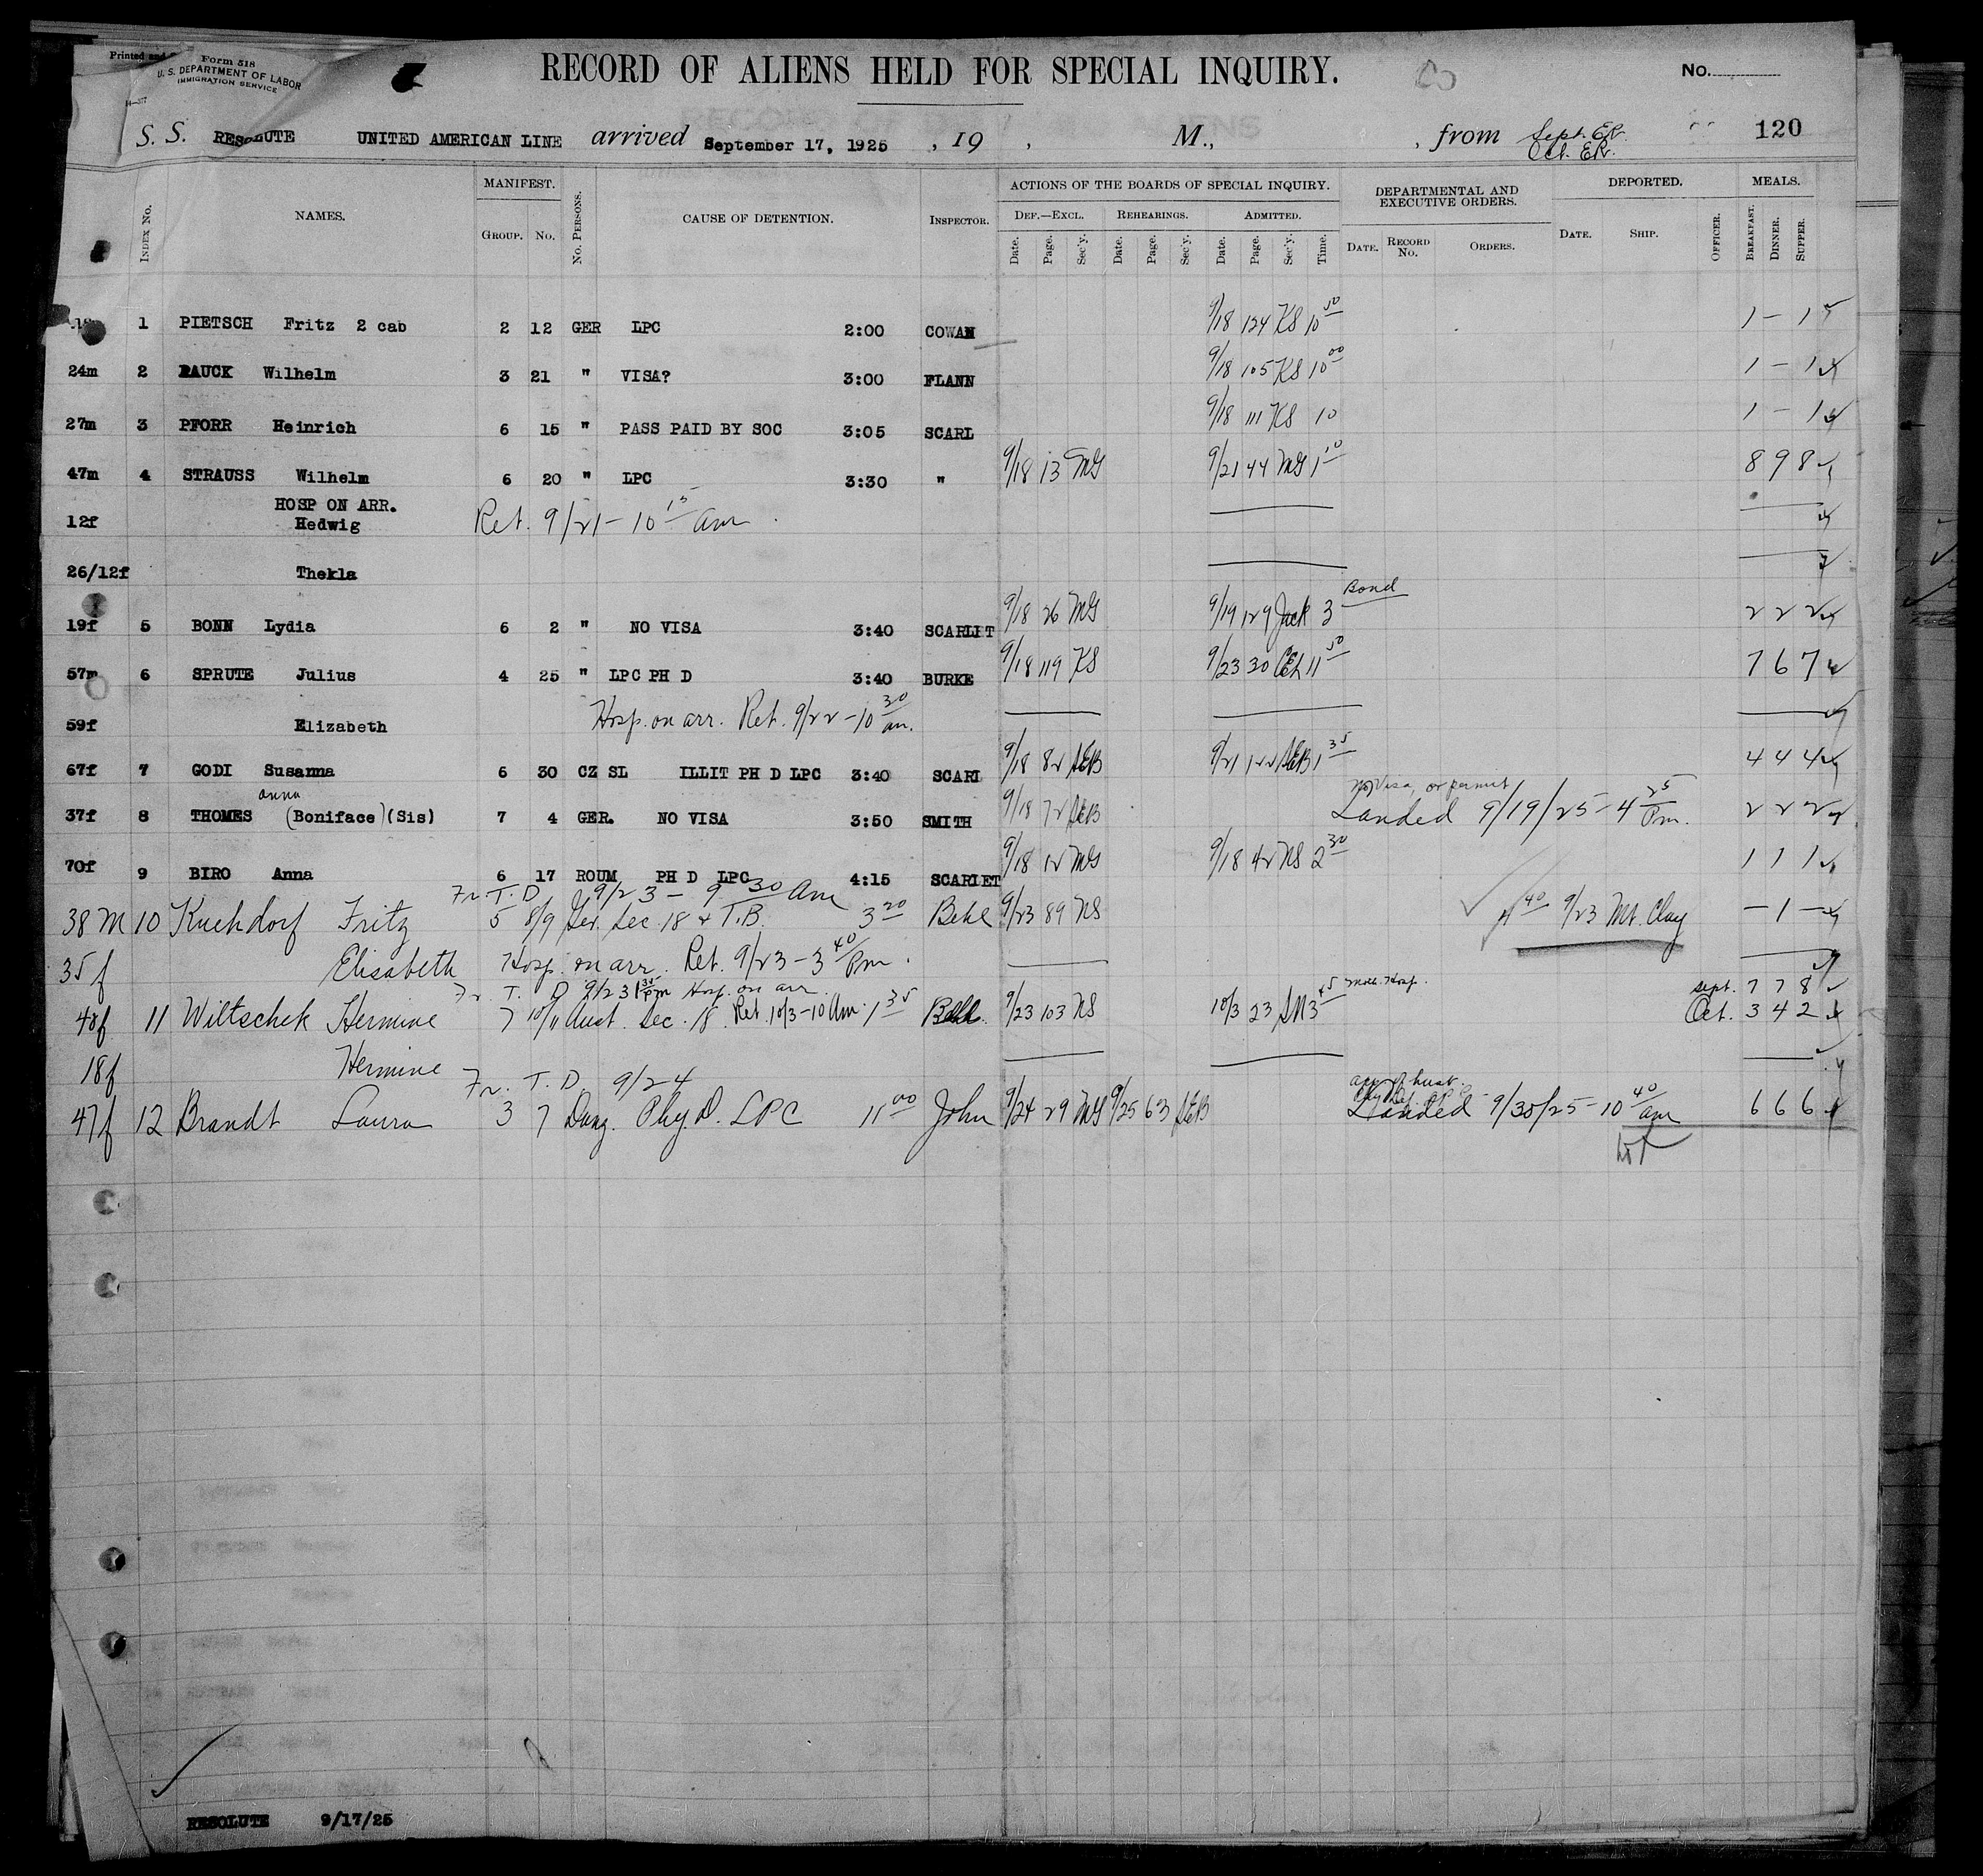 Printed and
Form 518
U. S. DEPARTMENT OF LABOR
IMMIGRATION SERVICE
RECORD OF ALIENS HELD FOR SPECIAL INQUIRY.
No.
S. S. RESOLUTE UNITED AMERICAN LINE arrived September 17, 1925 , 19 , M., , from Sept. ER. 120
Oct. ER.
INDEX No. NAMES. MANIFEST. GROUP. No. No. PERSONS. CAUSE OF DETENTION. INSPECTOR.
ACTIONS OF THE BOARDS OF SPECIAL INQUIRY. DEF.—EXCL. Date. Page. Sec'y. REHEARINGS. Date. Page. Sec'y. ADMITTED. Date. Page. Sec'y. Time.
DEPARTMENTAL AND EXECUTIVE ORDERS. DATE. RECORD No. ORDERS. DEPORTED. DATE. SHIP. OFFICER. MEALS. BREAKFAST. DINNER. SUPPER.
1 PIETSCH Fritz 2 cab 2 12 GER LPC 2:00 COWAN 9/18 124 KS 10 50 1 – 1
24m 2 RAUCK Wilhelm 3 21 " VISA? 3:00 FLANN 9/18 105 KS 10 00 1 – 1
27m 3 PFORR Heinrich 6 15 " PASS PAID BY SOC 3:05 SCARL 9/18 111 KS 10 1 – 1
47m 4 STRAUSS Wilhelm 6 20 " LPC 3:30 " 9/18 13 MG 9/21 44 MG 1 10 8 9 8
HOSP ON ARR.
12f Hedwig Ret. 9/21 – 10 15 am
26/12f Thekla
Bond
19f 5 BONN Lydia 6 2 " NO VISA 3:40 SCARLET 9/18 26 MG 9/19 129 Jack 3 2 2 2
57m 6 SPRUTE Julius 4 25 " LPC PH D 3:40 BURKE 9/18 119 KS 9/23 30 11 50 7 6 7
59f Elizabeth Hosp. on arr. Ret. 9/22 – 10 30 am.
67f 7 GODI Susanna 6 30 CZ SL ILLIT PH D LPC 3:40 SCARL 9/18 82 SEB 9/21 122 SEB 1 35 4 4 4
Anna
No Visa, or permit
37f 8 THOMES (Boniface)(Sis) 7 4 GER. NO VISA 3:50 SMITH 9/18 72 SEB Landed 9/19/25 – 4 25 Pm. 2 2 2
70f 9 BIRO Anna 6 17 ROUM PH D LPC 4:15 SCARLET 9/18 12 MG 9/18 42 NS 2 30 1 1 1
Fr. T. D. 9/23 – 9 30 Am
38 M 10 Kuchdorf Fritz 5 8/9 Ger. Sec. 18 & T.B. 3 20 Behl 9/23 89 NS 40 9/23 Mt. Clay – 1 –
35 f Elisabeth Hosp. on arr. Ret. 9/23 – 3 40 Pm.
Fr. T. D. 9/23 1 30 Pm Hosp. on arr.
Hosp. Sept. 7 7 8
48f 11 Wiltschek Hermine 7 10/11 Aust. Sec. 18. Ret. 10/3 – 10 Am. 1 35 Behl. 9/23 103 NS 10/3 23 3 45 Oct. 3 4 2
18f Hermine
Fr. T. D. 9/24
app. of husb.
47f 12 Brandt Laura 3 7 Dang. Phy. D. LPC 11 00 John 9/24 29 MG 9/25 63 SEB Landed 9/30/25 – 10 40 am 6 6 6
RESOLUTE 9/17/25